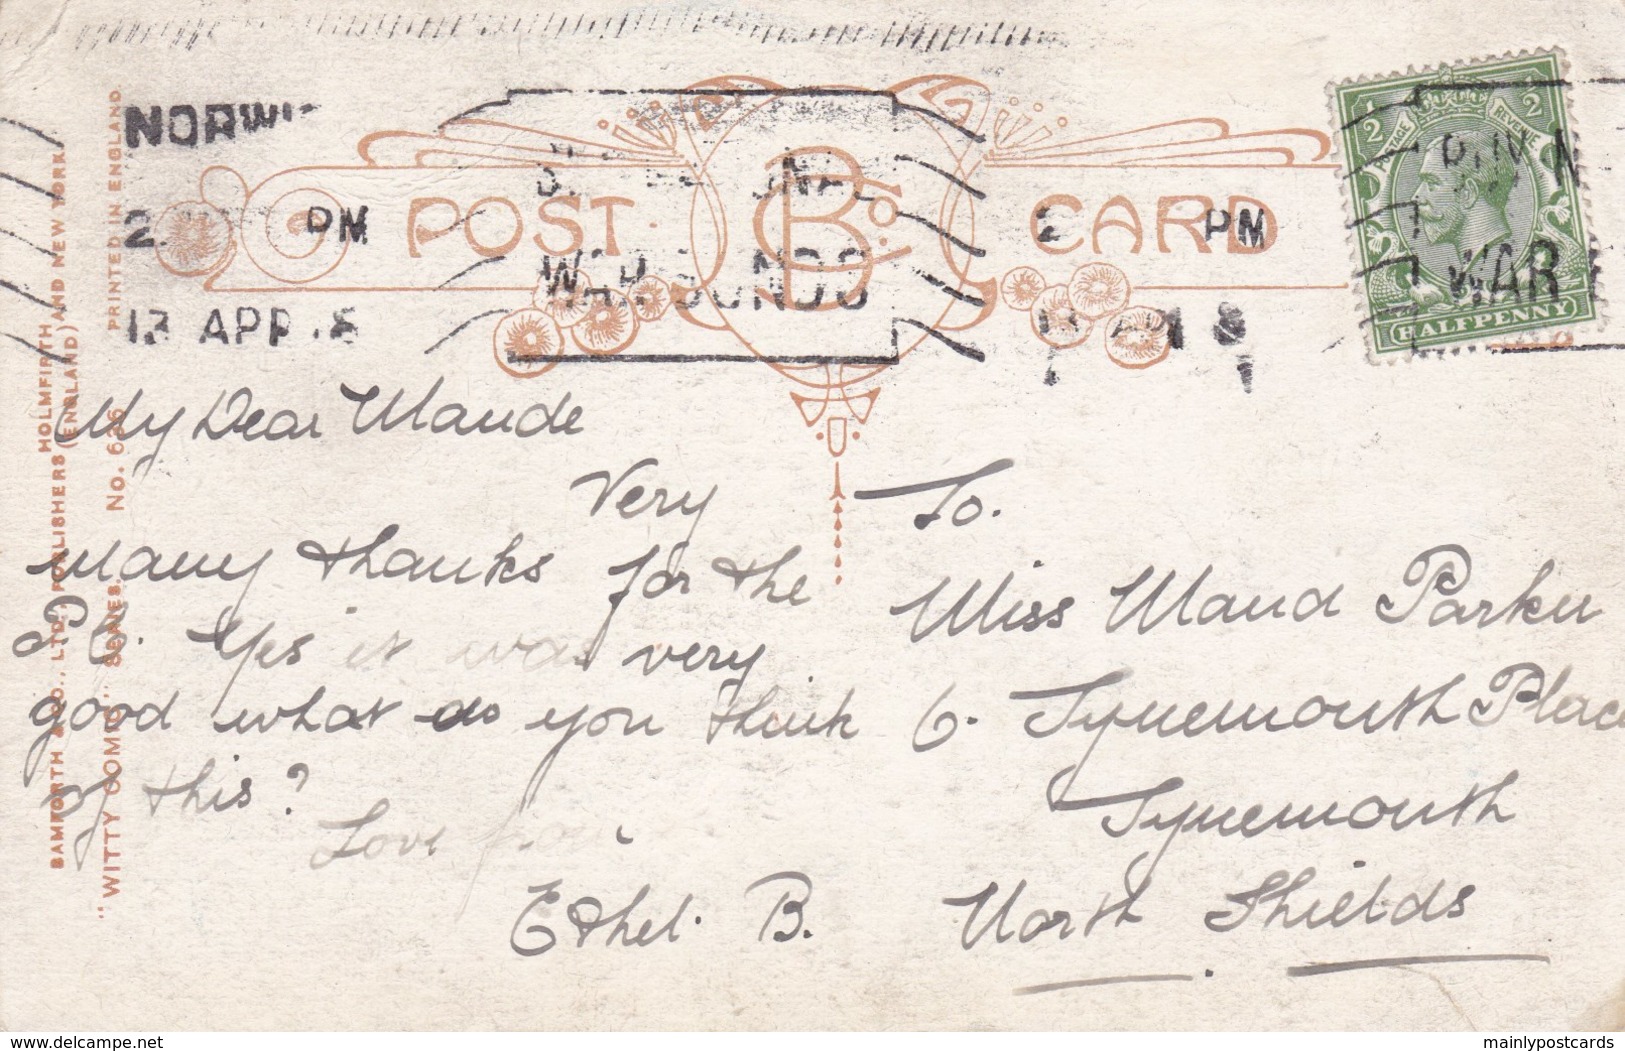 PM
13 APR 18
POST CARD
B Co.
PM
WAR
POSTAGE REVENUE
1/2 1/2
HALFPENNY
BAMFORTH & CO., LTD., PUBLISHERS (ENGLAND)
HOLMFIRTH AND NEW YORK
"WITTY COMIC" SERIES. No. 636
PRINTED IN ENGLAND
My Dear Maude
Very
many thanks for the
P.C. Yes it was very
good what do you think
of this?
Love from
Ethel. B.
To.
Miss Maud Parker
6. Tynemouth Place
Tynemouth
North Shields
delcampe.net
mainlypostcards